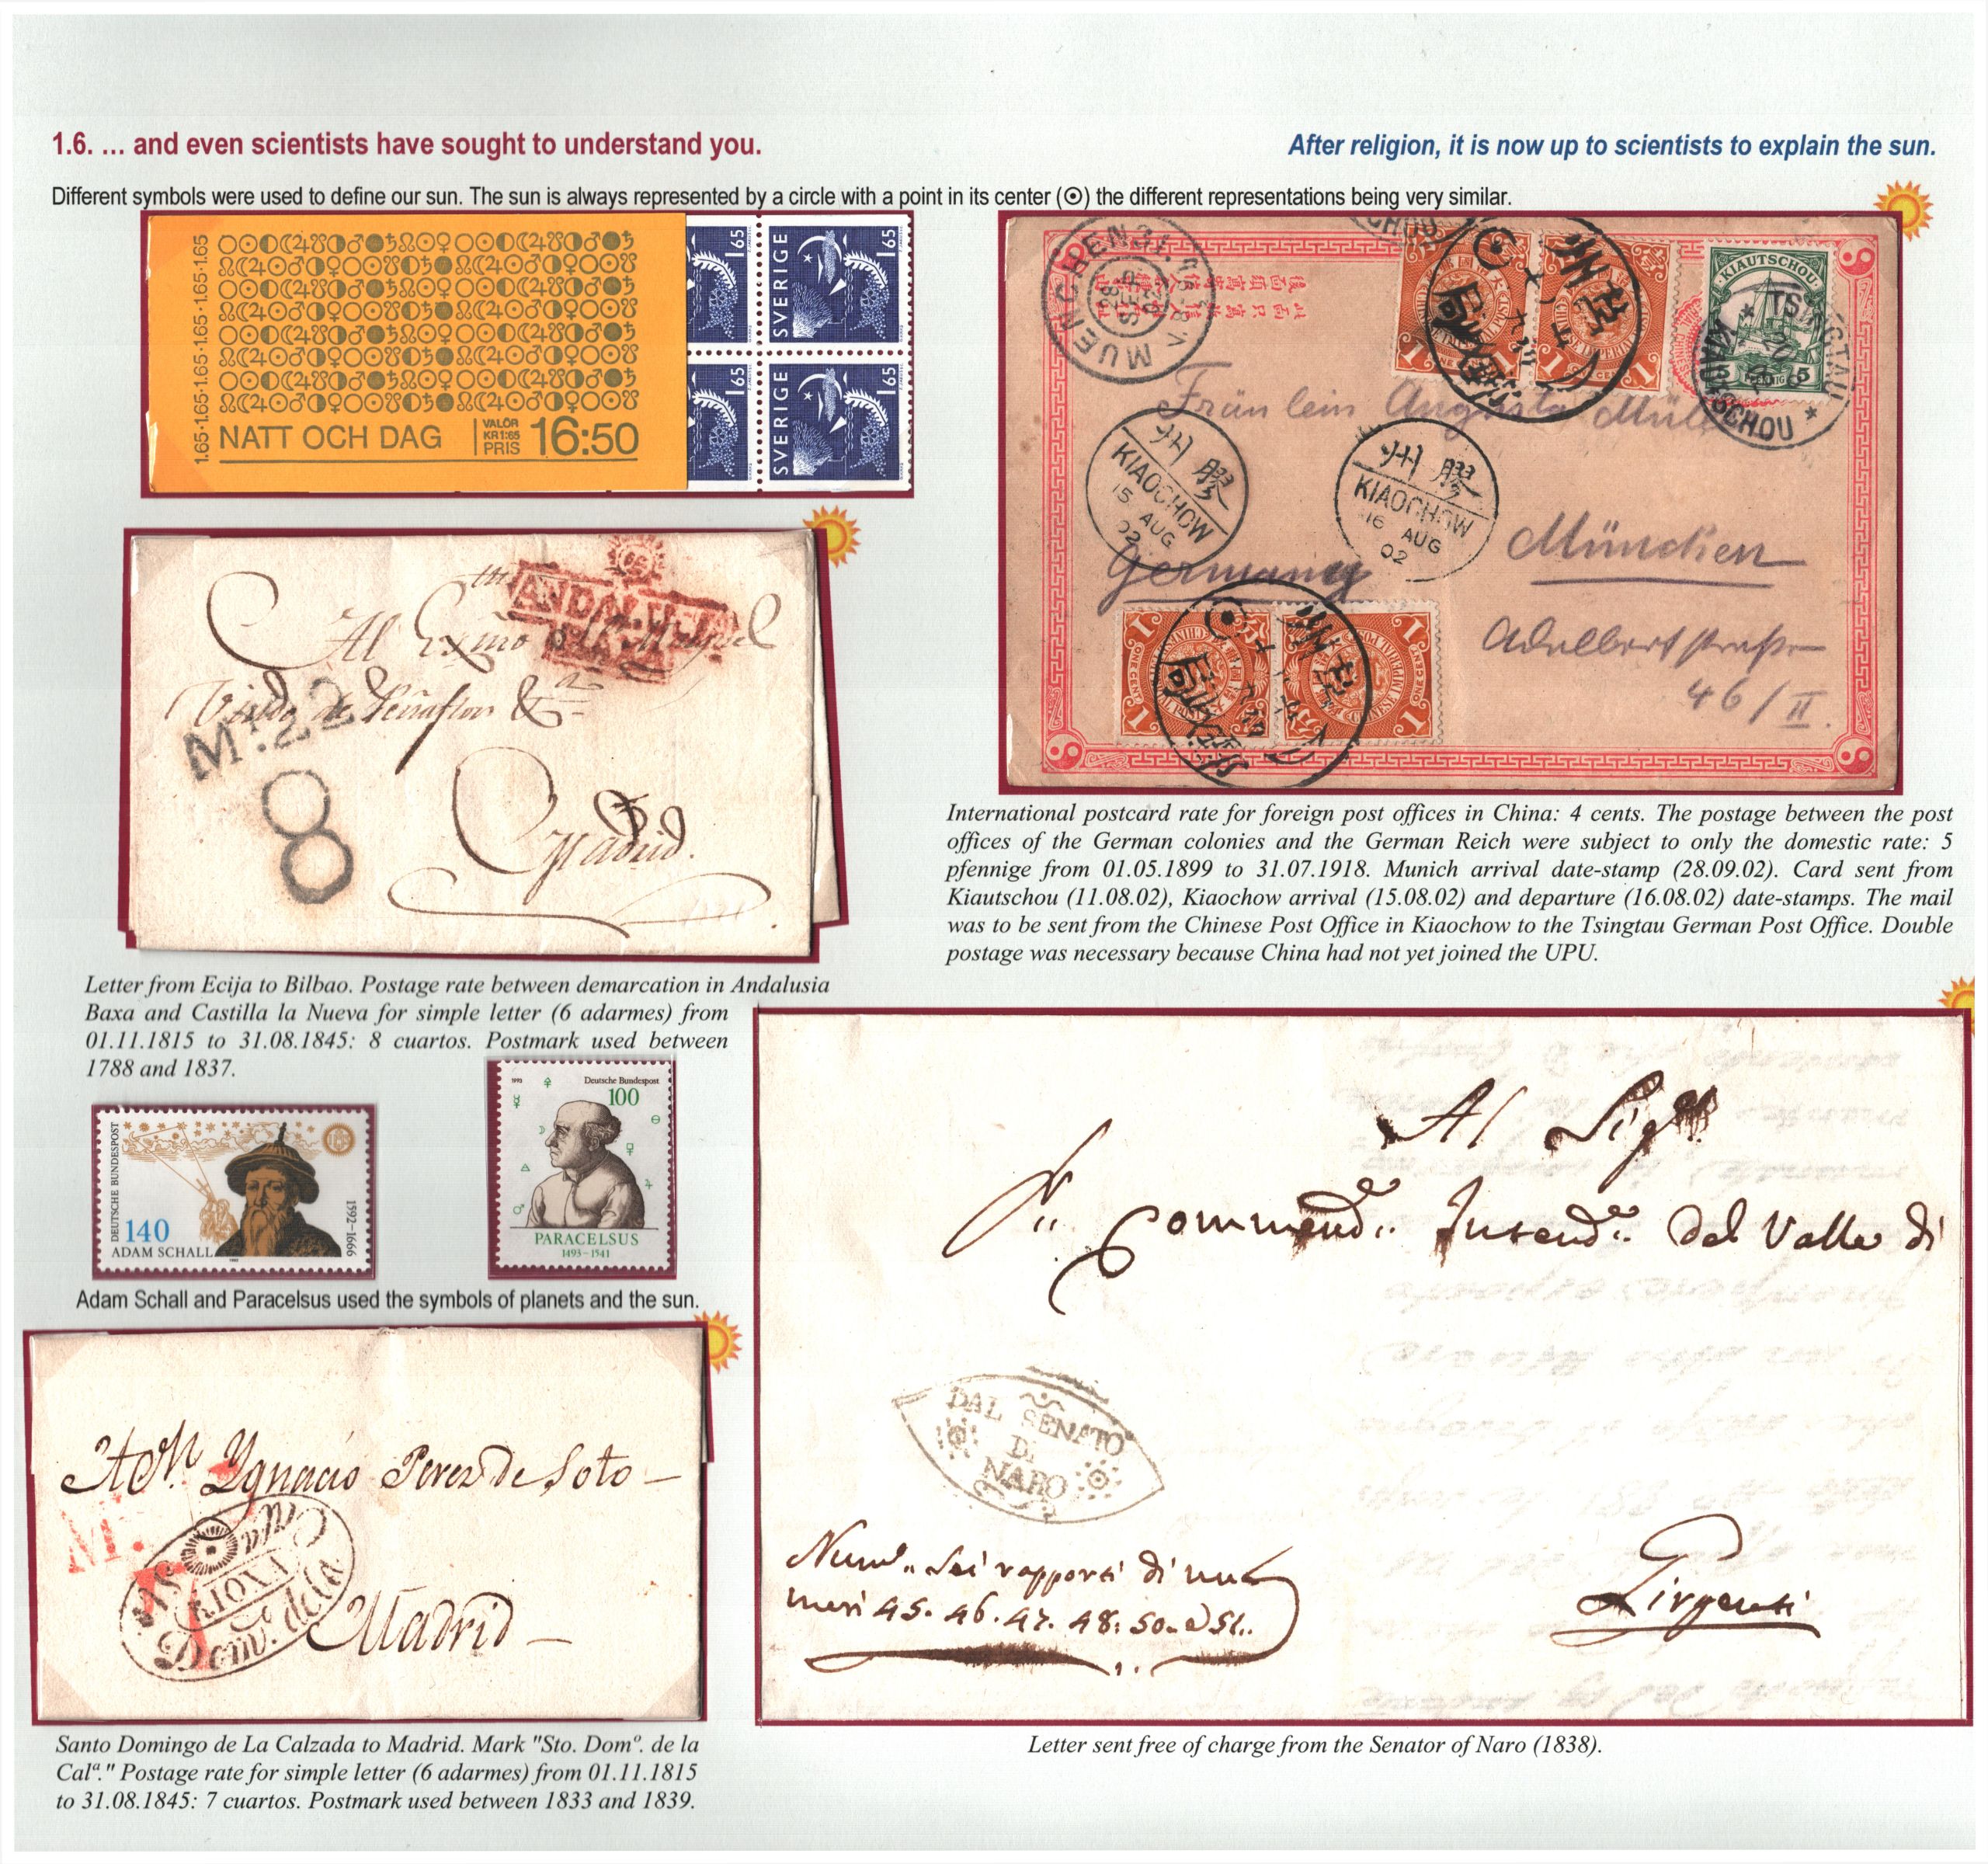 1.6. ... and even scientists have sought to understand you.
After religion, it is now up to scientists to explain the sun.
Different symbols were used to define our sun. The sun is always represented by a circle with a point in its center (☉) the different representations being very similar.
1.65·1.65·1.65·1.65·1.65·1.65
NATT OCH DAG
VALÖR
KR1:65
PRIS
16:50
SVERIGE 1.65
SVERIGE 1.65
1.65
1.65
MUENCHEN
KIAUTSCHOU
5 PFENNIG 5
TSINGTAU
KIAUTSCHOU
1 ONE CENT 1
Fräulein Augusta
膠州
KIAOCHOW
15 AUG
02
膠州
KIAOCHOW
16 AUG
02
Germany
München
Adalbertstraße
46/II.
1 ONE CENT 1
International postcard rate for foreign post offices in China: 4 cents. The postage between the post
offices of the German colonies and the German Reich were subject to only the domestic rate: 5
pfennige from 01.05.1899 to 31.07.1918. Munich arrival date-stamp (28.09.02). Card sent from
Kiautschou (11.08.02), Kiaochow arrival (15.08.02) and departure (16.08.02) date-stamps. The mail
was to be sent from the Chinese Post Office in Kiaochow to the Tsingtau German Post Office. Double
postage was necessary because China had not yet joined the UPU.
Al Exmo
de Peñaflor &
8
Madrid.
Letter from Ecija to Bilbao. Postage rate between demarcation in Andalusia
Baxa and Castilla la Nueva for simple letter (6 adarmes) from
01.11.1815 to 31.08.1845: 8 cuartos. Postmark used between
1788 and 1837.
DEUTSCHE BUNDESPOST
140
ADAM SCHALL
1592–1666
1992
1993
Deutsche Bundespost
100
PARACELSUS
1493–1541
Adam Schall and Paracelsus used the symbols of planets and the sun.
Ygnacio Perez de Soto –
Madrid –
M.
Sto
RIOXA
Domo. de la
Santo Domingo de La Calzada to Madrid. Mark "Sto. Domº. de la
Calª." Postage rate for simple letter (6 adarmes) from 01.11.1815
to 31.08.1845: 7 cuartos. Postmark used between 1833 and 1839.
Al Sigre
Commend. Intend. del Valle di
DAL SENATO
DI
NARO
Num. Sei rapporti di nu
meri 45. 46. 47. 48: 50. e 51.
Girgenti
Letter sent free of charge from the Senator of Naro (1838).